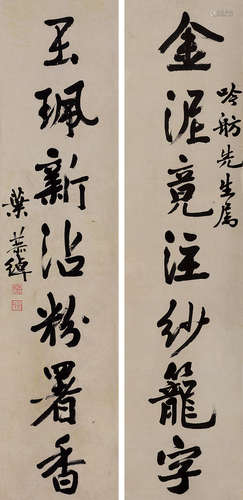 金泥竟注纱籠字
吟舫先生属
玉珮新沾粉署香
葉恭綽